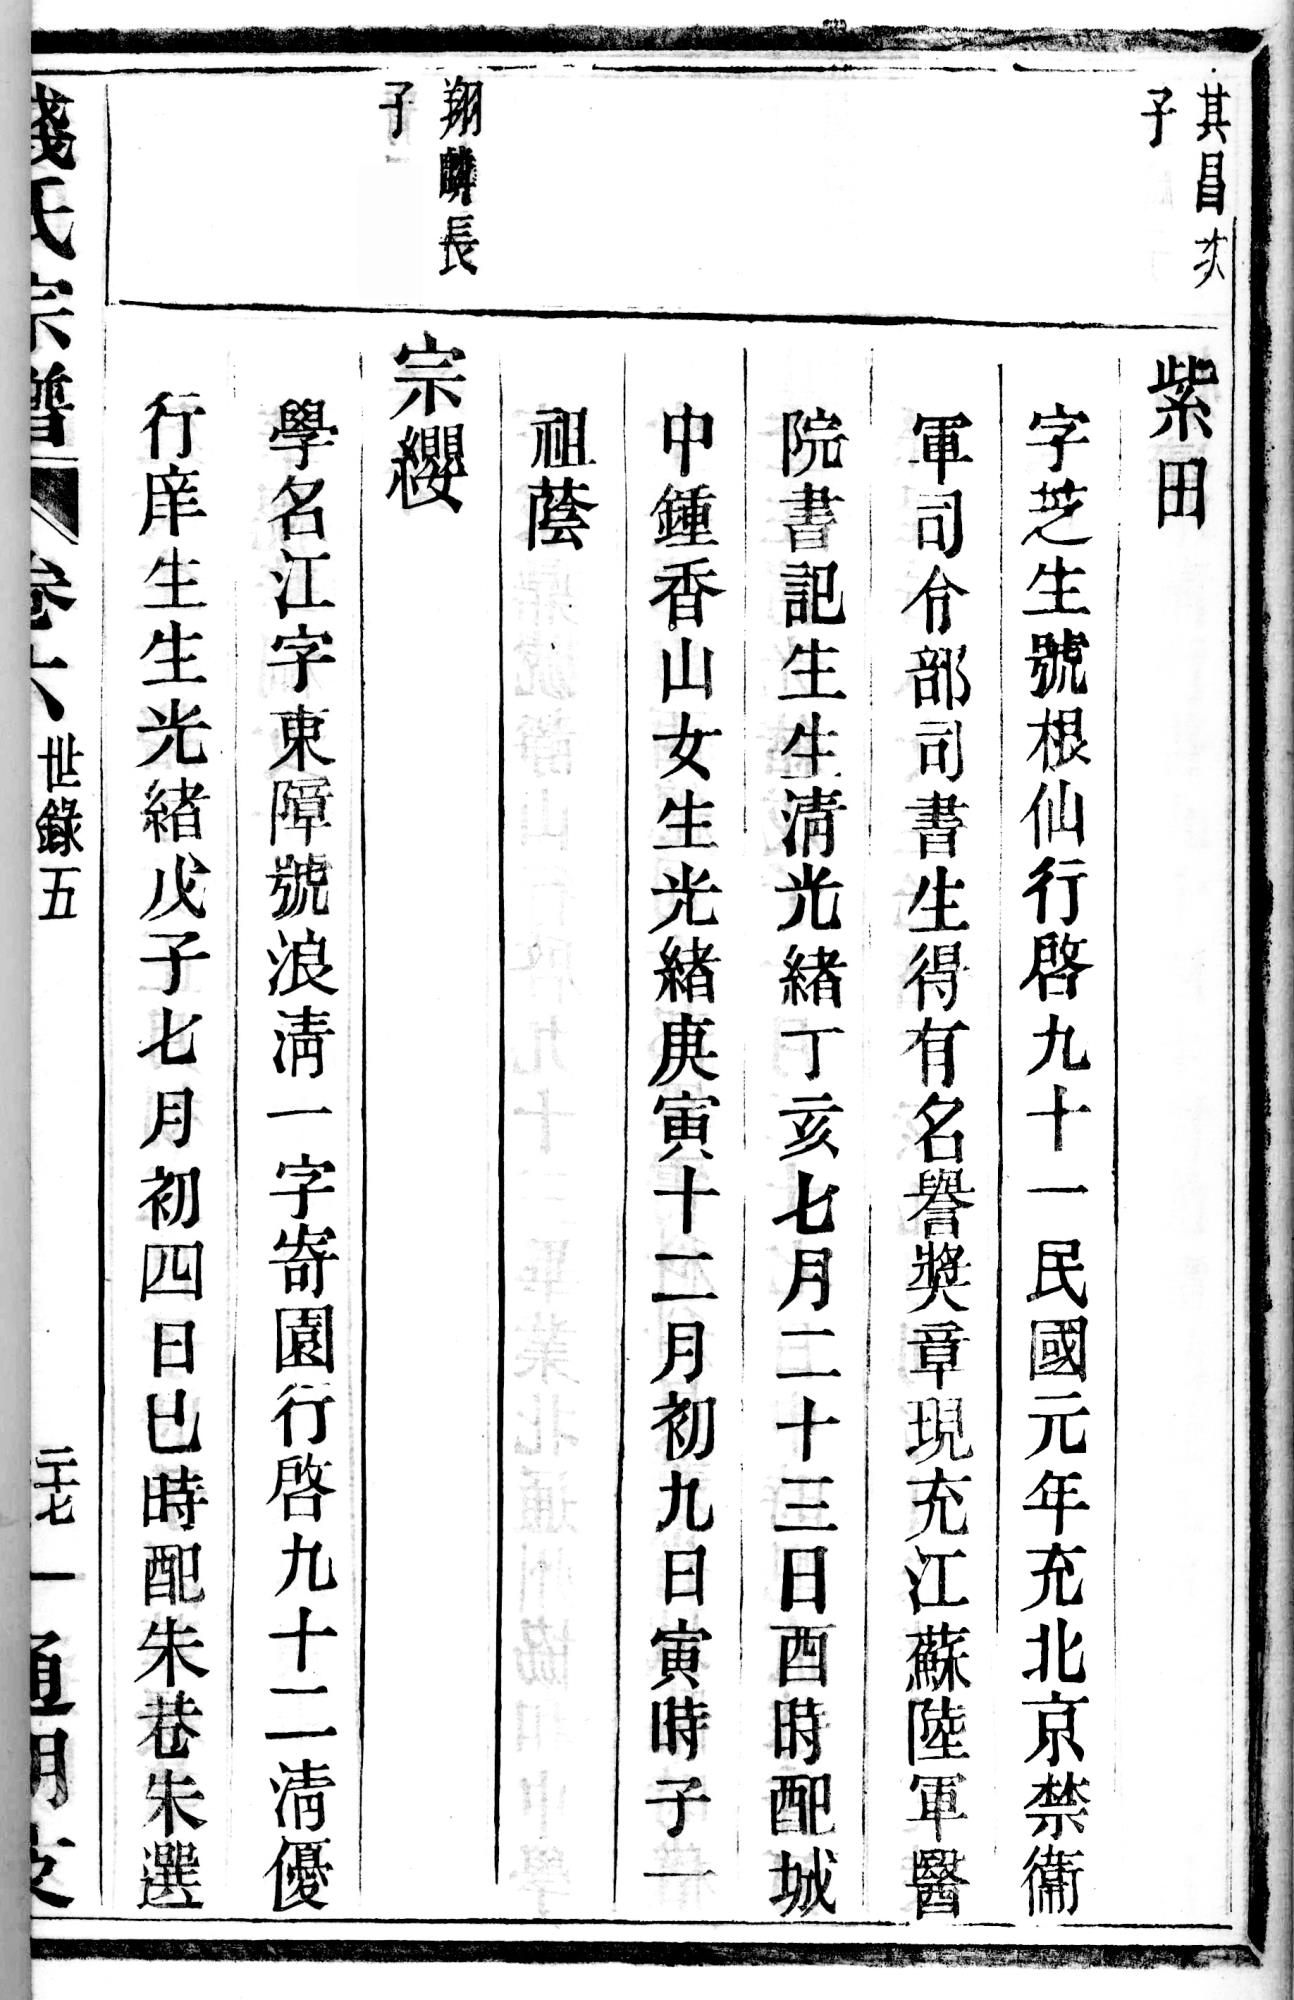 其昌次
子
紫田
字芝生號根仙行啓九十一民國元年充北京禁衞
軍司令部司書生得有名譽奬章現充江蘇陸軍醫
院書記生生淸光緒丁亥七月二十三日酉時配城
中鍾香山女生光緒庚寅十二月初九日寅時子一
祖蔭
翔麟長
子
宗纓
學名江字東障號浪淸一字寄園行啓九十二淸優
行庠生生光緒戊子七月初四日巳時配朱巷朱選
錢氏宗譜 卷六 世錄五 二十七